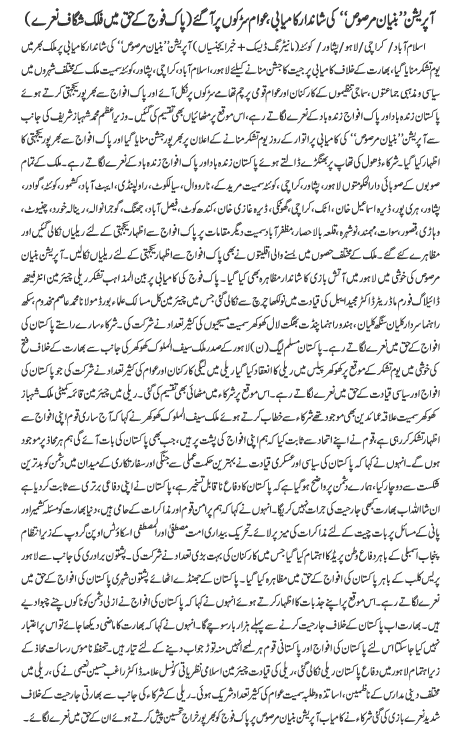 آپریشن ’’بنیان مرصوص‘‘ کی شاندار کامیابی، عوام سڑکوں پر آ گئے (پاک فوج کے حق میں فلک شگاف نعرے)
اسلام آباد/ کراچی/ لاہور/ پشاور/ کوئٹہ (مانیٹرنگ ڈیسک + خبر ایجنسیاں) آپریشن ’’بنیان مرصوص‘‘ کی شاندار کامیابی پر ملک بھر میں
یوم تشکر منایا گیا، بھارت کے خلاف کامیابی پر جیت کا جشن منانے کیلئے لاہور، اسلام آباد، کراچی، پشاور، کوئٹہ سمیت ملک کے مختلف شہروں میں
سیاسی و مذہبی جماعتوں، سماجی تنظیموں کے کارکنان اور عوام قومی پرچم تھامے سڑکوں پر نکل آئے اور پاک افواج سے بھرپور یکجہتی کرتے ہوئے
پاکستان زندہ باد اور پاک افواج زندہ باد کے نعرے لگاتے رہے، اس موقع پر مٹھائیاں بھی تقسیم کی گئیں۔ وزیراعظم محمد شہباز شریف کی جانب
سے آپریشن ’’بنیان مرصوص‘‘ کی کامیابی پر اتوار کے روز یوم تشکر منانے کے اعلان پر بھرپور جشن منایا گیا اور پاک افواج سے بھرپور یکجہتی کا
اظہار کیا گیا۔ شرکاء ڈھول کی تھاپ پر بھنگڑے ڈالتے ہوئے پاکستان زندہ باد اور پاک افواج زندہ باد کے نعرے لگاتے رہے۔ ملک کے تمام
صوبوں کے صوبائی دارالحکومتوں لاہور، پشاور، کراچی، کوئٹہ سمیت مریدکے، نارووال، سیالکوٹ، راولپنڈی، ایبٹ آباد، کشمور، کوئٹہ، گوادر،
پشاور، ہری پور، ڈیرہ اسماعیل خان، اٹک، کراچی، گھوٹکی، ڈیرہ غازی خان، کندھ کوٹ، فیصل آباد، جھنگ، گوجرانوالہ، رینالہ خورد، چنیوٹ،
وہاڑی، قصور، سوات، مہمند، نوشہرہ، قلعہ بالا حصار، مظفر آباد سمیت دیگر مقامات پر پاک افواج سے اظہار یکجہتی کے لئے ریلیاں نکالی گئیں اور
مظاہرے کئے گئے۔ ملک کے مختلف حصوں میں بسنے والی اقلیتوں نے بھی پاک افواج سے اظہار یکجہتی کے لئے ریلیاں نکالیں۔ آپریشن بنیان
مرصوص کی خوشی میں لاہور میں آتش بازی کا شاندار مظاہرہ بھی کیا گیا۔ پاک فوج کی کامیابی پر بین المذاہب تشکر ریلی چیئرمین انٹرفیتھ
ڈائیلاگ فورم ماڈریٹر ڈاکٹر مجید ایبل کی قیادت میں نولکھا چرچ سے نکالی گئی جس میں چیئرمین کل مسالک علماء بورڈ مولانا محمد عاصم مخدوم، سکھ
راہنما سردار کلیان سنگھ کلیان، ہندو راہنما پنڈت بھگت لال کھوکھر سمیت مسیحیوں کی کثیر تعداد نے شرکت کی۔ شرکاء سارے راستے پاکستان کی
افواج کے حق میں نعرے لگاتے رہے۔ پاکستان مسلم لیگ (ن) لاہور کے صدر ملک سیف الملوک کھوکھر کی جانب سے بھارت کے خلاف فتح
کی خوشی میں یوم تشکر کے موقع پر کھوکھر پیلس میں ریلی کا انعقاد کیا گیا، ریلی میں لیگی کارکنان اور عوام کی کثیر تعداد نے شرکت کی جو پاکستان کی
افواج اور سیاسی قیادت کے حق میں نعرے لگاتے رہے۔ اس موقع پر شرکاء میں مٹھائی بھی تقسیم کی گئی۔ ریلی میں چیئرمین قائمہ کمیٹی ملک شہباز
کھوکھر سمیت علاقہ عمائدین بھی موجود تھے شرکاء سے خطاب کرتے ہوئے ملک سیف الملوک کھوکھر نے کہا کہ آج ساری قوم افواج سے
اظہار تشکر کر رہی ہے، قوم نے اپنے اتحاد سے ثابت کیا کہ ہم اپنی افواج کی پشت پر ہیں، جب بھی پاکستان کی بات آئے گی ہم ہر محاذ پر موجود
ہوں گے۔ انہوں نے کہا کہ پاکستان کی سیاسی اور عسکری قیادت نے بہترین حکمت عملی سے جنگی اور سفارتکاری کے میدان میں دشمن کو بدترین
شکست سے دوچار کیا، ہمارے دشمن پر واضح ہو گیا ہے کہ پاکستان کا دفاع ناقابل تسخیر ہے، پاکستان نے اپنی دفاعی برتری سے ثابت کر دیا ہے
ان شاء اللہ اب بھارت کبھی جارحیت کی جرات نہیں کرے گا۔ انہوں نے کہا کہ ہم پرامن قوم اور امن کے داعی ہیں، دنیا بھارت کو مسئلہ کشمیر اور
پانی کے مسائل پر بات چیت کے لئے مذاکرات کی میز پر لائے۔ تحریک بیداری امت مصطفیٰ اور المصطفیٰ اسکاؤٹس اوپن گروپ کے زیر انتظام
پنجاب اسمبلی کے باہر دفاع وطن پریڈ کا اہتمام کیا گیا جس میں کارکنان کی بہت بڑی تعداد نے شرکت کی۔ پشتون برادری کی جانب سے لاہور
پریس کلب کے باہر پاکستان کی افواج کے حق میں مظاہرہ کیا گیا۔ پاکستان کے جھنڈے اٹھائے پشتون شہری پاکستان کی افواج کے حق میں
نعرے لگاتے رہے۔ اس موقع پر اپنے جذبات کا اظہار کرتے ہوئے انہوں نے کہا کہ پاکستان کی افواج نے ازلی دشمن کو ناکوں چنے چبوا دیے
ہیں۔ بھارت اب پاکستان کے خلاف جارحیت کرنے سے پہلے ہزار بار سوچے گا۔ انہوں نے کہا کہ بھارت کا ماضی دیکھا جائے تو اس پر اعتبار
نہیں کیا جا سکتا اس لئے پاکستان کی افواج اور پاکستانی قوم ہر لمحے انہیں منہ توڑ جواب دینے کے لئے تیار ہیں۔ تحفظ ناموس رسالت محاذ کے
زیر اہتمام لاہور میں دفاع پاکستان ریلی نکالی گئی، ریلی کی قیادت چیئرمین اسلامی نظریاتی کونسل علامہ ڈاکٹر راغب حسین نعیمی نے کی، ریلی میں
مختلف دینی مدارس کے ناظمین، اساتذہ و طلبہ سمیت عوام کی کثیر تعداد شریک ہوئی۔ ریلی کے شرکاء کی جانب سے بھارتی جارحیت کے خلاف
نعرے بازی کی گئی شرکاء نے کامیاب آپریشن بنیان مرصوص پر پاک فوج کو بھرپور خراج تحسین پیش کرتے ہوئے ان کے حق میں نعرے لگائے۔